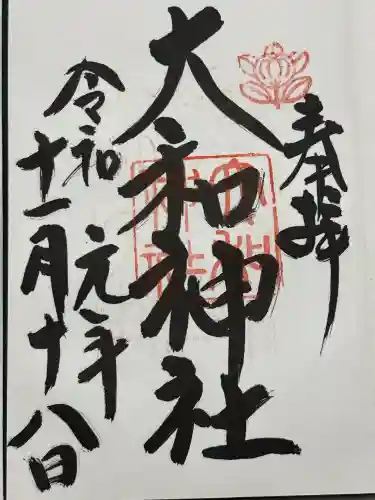 奉拝
大和神社
令和元年
十一月十八日